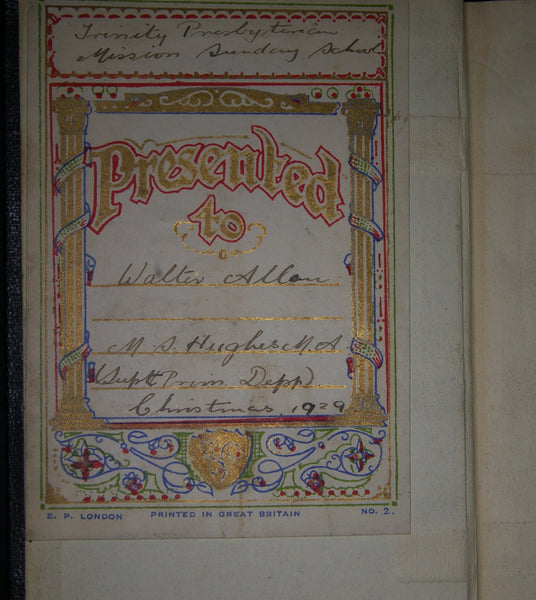 Trinity Presbyterian
Mission Sunday School
Presented
to
Walter Allen
M S Hughes M A
(Supt Prim Dept)
Christmas, 1929
E. P. LONDON PRINTED IN GREAT BRITAIN NO. 2.